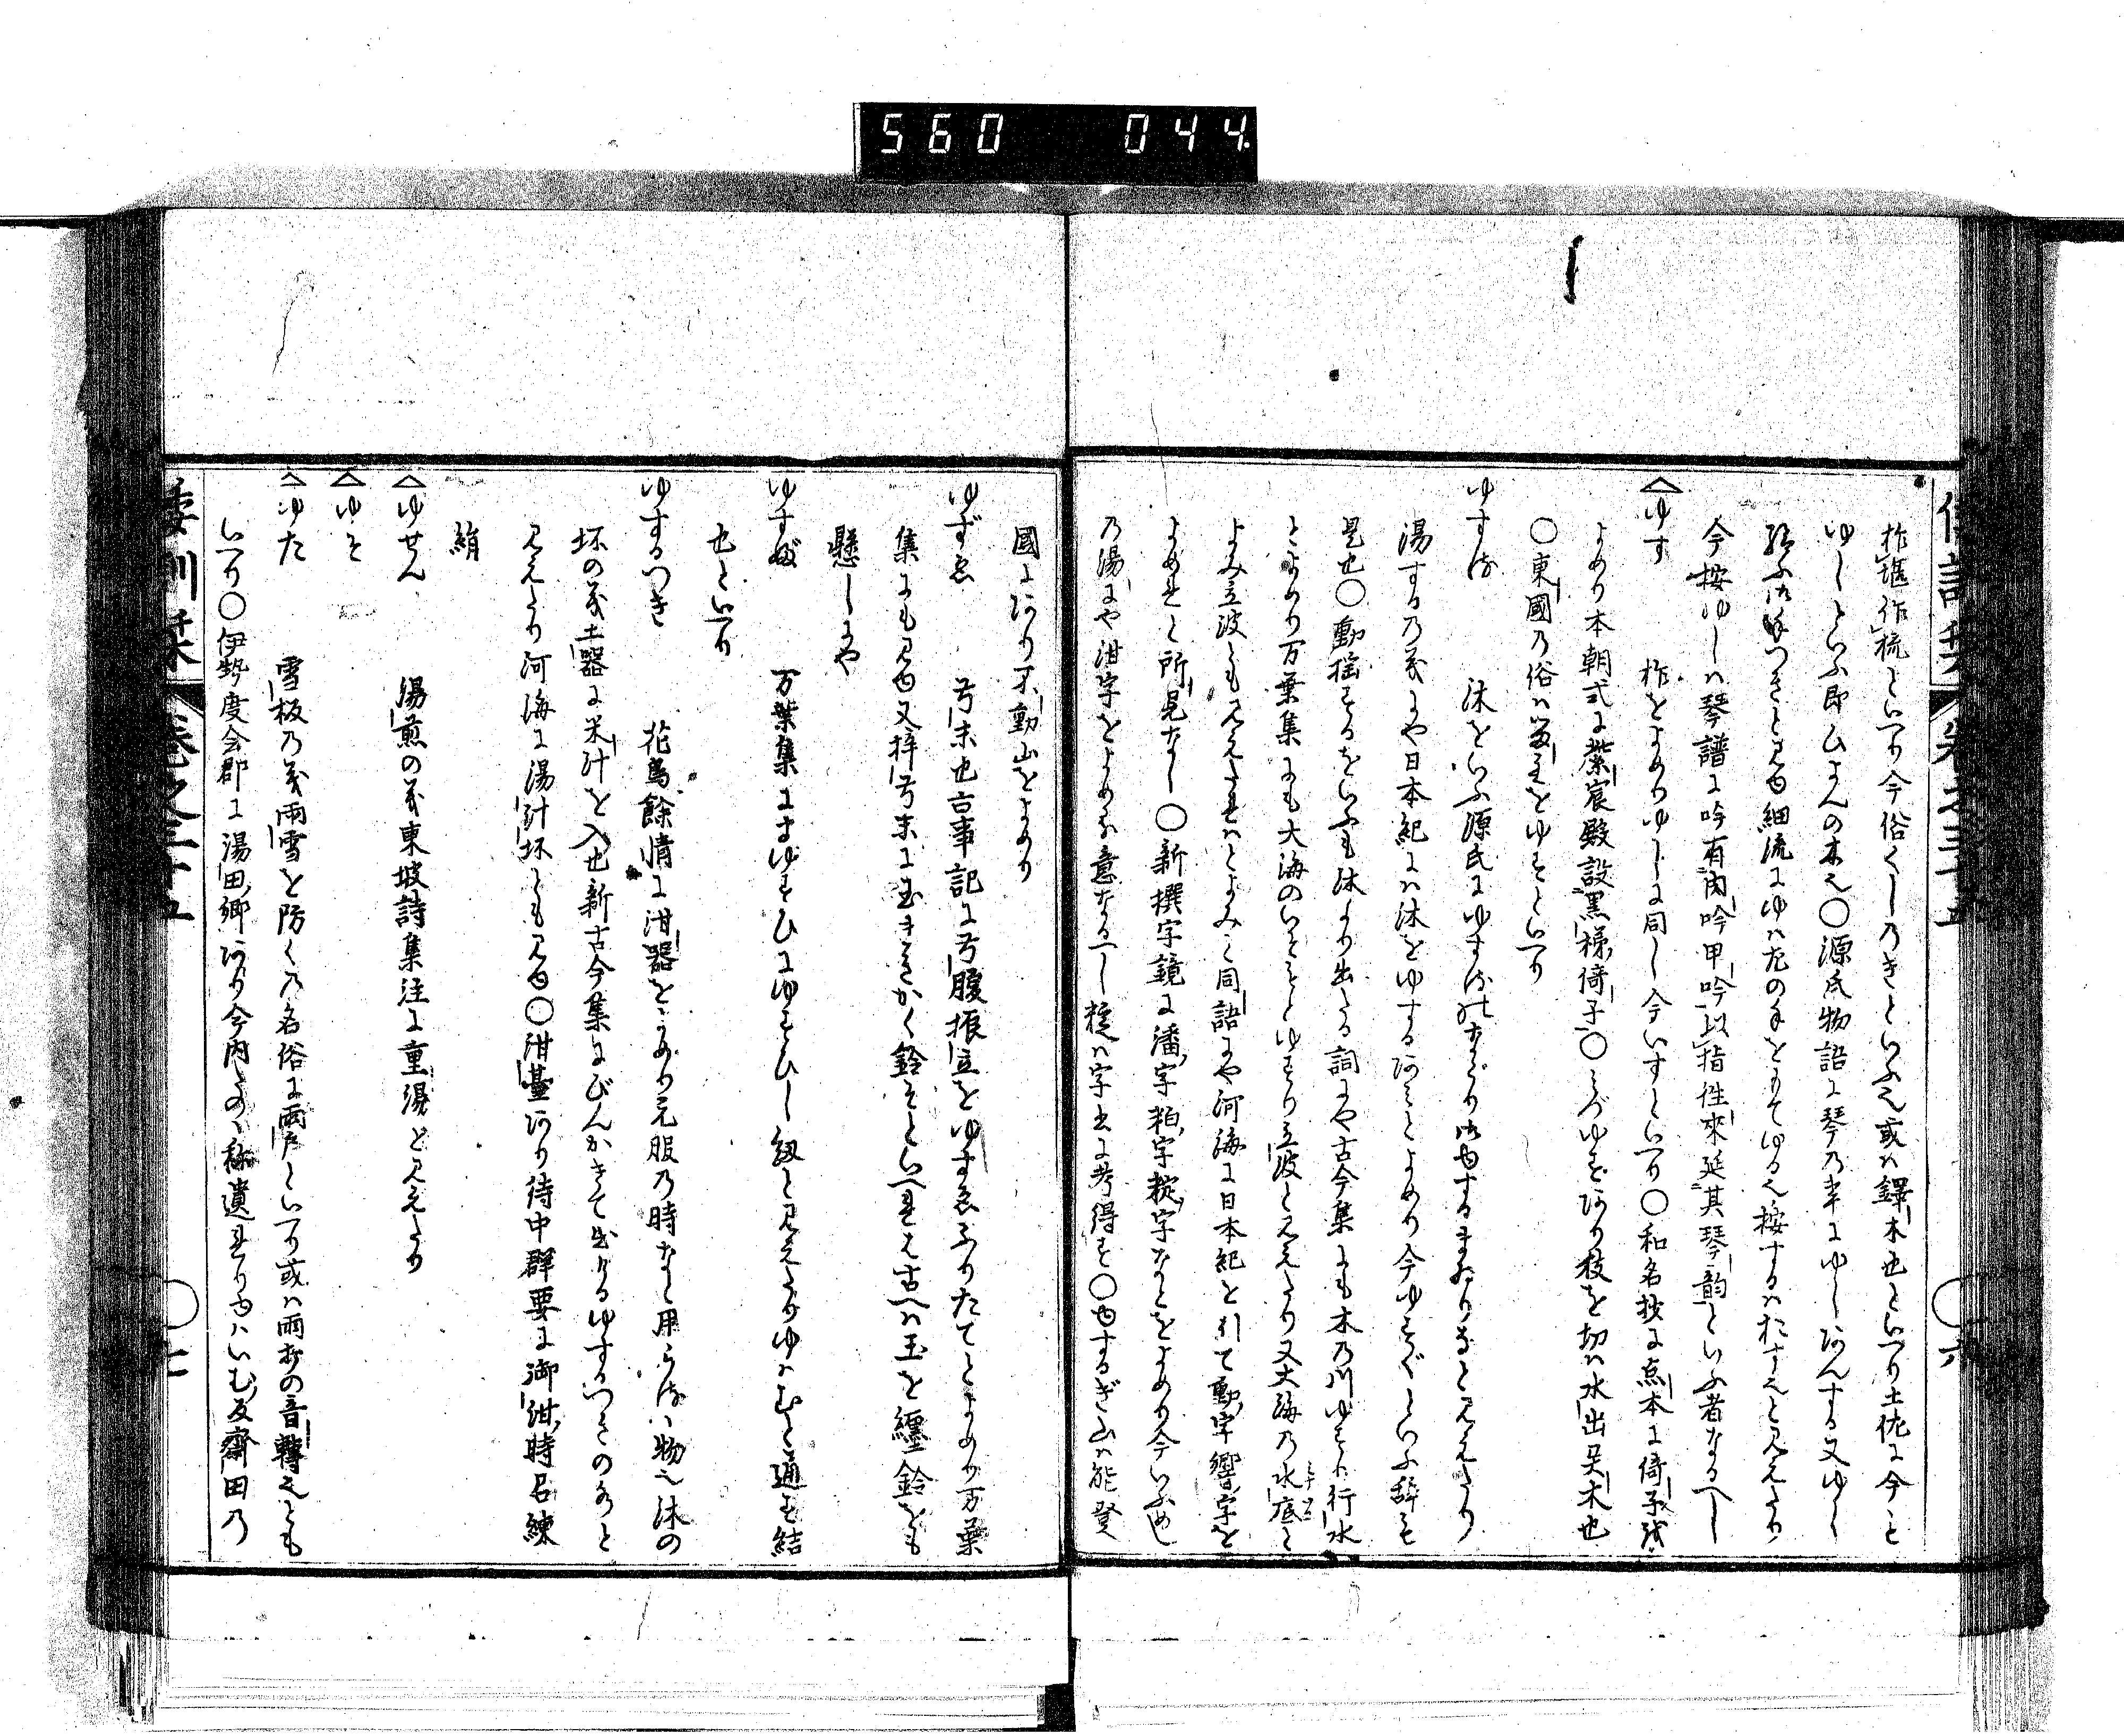 560 044
倭訓栞 卷之三十五 六
柞堪作梳といへり今俗くしのきといふ也或ハ鐸木也といへり土佐に今も
ゆしといふ即ひよんの木也○源氏物語に琴の事にゆしあんする又ゆし
給ふ御手つきと見ゆ細流にゆハ左の手をもてゆる也按するハおす也と見えたり
今按ゆしハ琴譜に吟有内吟甲吟以指往來延其琴韵といふ者なるへし
ゆす 柞をよめりゆしに同し今いすといへり○和名抄に点本に倚子を
よめり本朝式に紫宸殿設黒柿倚子○みづゆすあり枝を切ハ水出呉木也
○東國の俗ハをゆすといへり
ゆする 沐をいふ源氏に見えたり
湯する乃義にや日本紀にハ沐をゆするあみとよめり今ゆすぐといふ辞も
是也○動揺するをいふも沐より出たる詞にや古今集にも木の川ゆすり行水
とよめり万葉集にも大海のいそもとゆすり立波と見えたり又大海乃水底と
よみ立波とも見えたれハとよみと同語にや河海に日本紀を引て動字響字を
よめれと所見なし○新撰字鏡に潘字粕字字なとをよめり今いふめし
乃湯にや泔字をよめる意なるへし糉ハ字書に考得す○ゆするぎ山ハ能登
國にあり不動山をよめり
ゆずゑ 弓末也古事記に弓腹振立をゆすゑふりたてとよめり万葉
集にも見ゆ又梓弓末に玉まきかく鈴もといへれは古へハ玉を纏鈴をも
懸しにや
ゆすび 万葉集にまゆすひにゆすひし紐と見えたりゆハむと通す結
也といへり
ゆするつき 花鳥餘情に泔器をよめり元服乃時なと用らるゝ物也沐の
坏の義土器に米汁を入也新古今集にびんかきて出けるゆするつきの水と
見えたり河海に湯汁坏とも見ゆ○泔臺あり侍中群要に御泔時召練
絹
ゆせん 湯煎の義東坡詩集注に重湯と見えたり
ゆそ
ゆた 雪板乃義雨雪を防く乃名俗に雨戸といへり或ハ雨打の音轉也とも
いへり○伊勢度会郡に湯田郷あり今内乃称遺れりゆハいむ反齋田乃
倭訓栞 卷之三十五 七